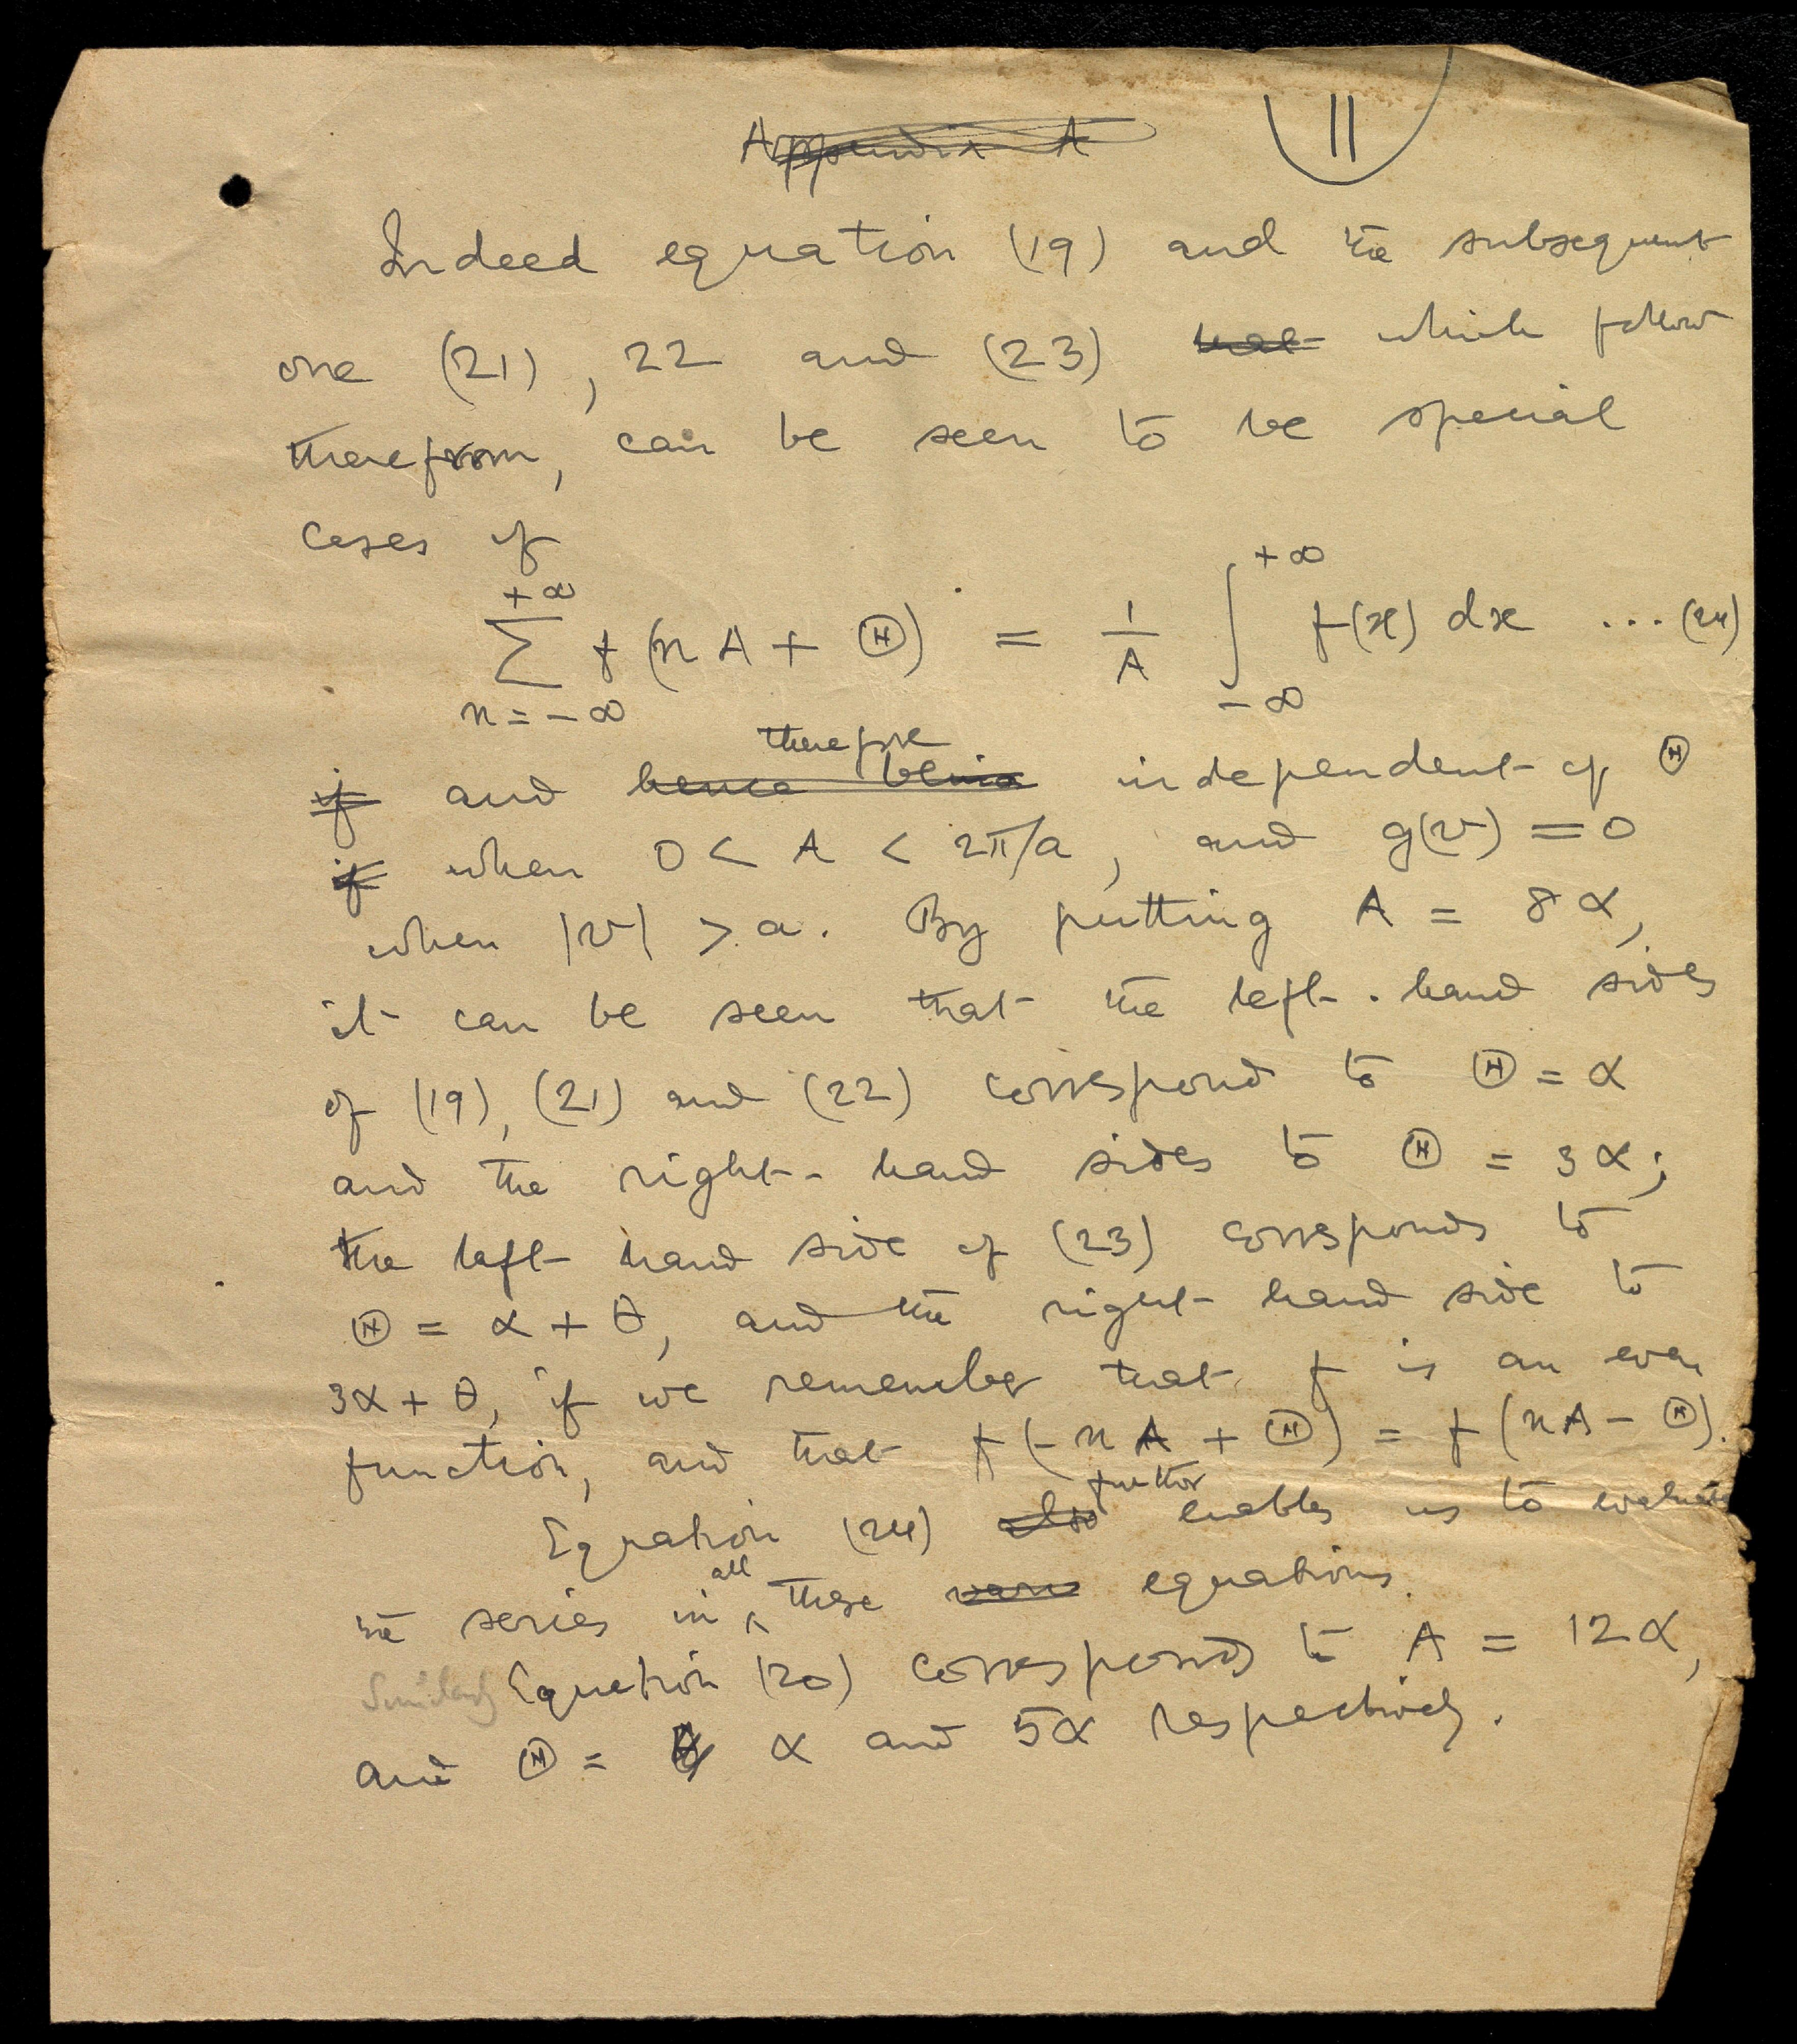 Appendix A
11
Indeed equation (19) and the subsequent
one (21), 22 and (23) which follow
therefrom, can be seen to be special
cases of
+∞ +∞
∑ f (nA + Ⓗ) = 1/A ∫ f(x) dx ... (24)
n = -∞ -∞
therefore
if and hence being independent of Ⓗ
if when 0 < A < 2π/a, and g(v) = 0
when |v| > a. By putting A = 8α,
it can be seen that the left-hand sides
of (19), (21) and (22) correspond to Ⓗ = α
and the right-hand sides to Ⓗ = 3α;
the left hand side of (23) corresponds to
Ⓗ = α + θ, and the right hand side to
3α + θ, if we remember that f is an even
function, and that f(-nA + Ⓗ) = f(nA - Ⓗ).
further
Equation (24) also enables us to evaluate
all
the series in ^ these equations.
Similarly Equation (20) corresponds to A = 12α,
and Ⓗ = α and 5α respectively.